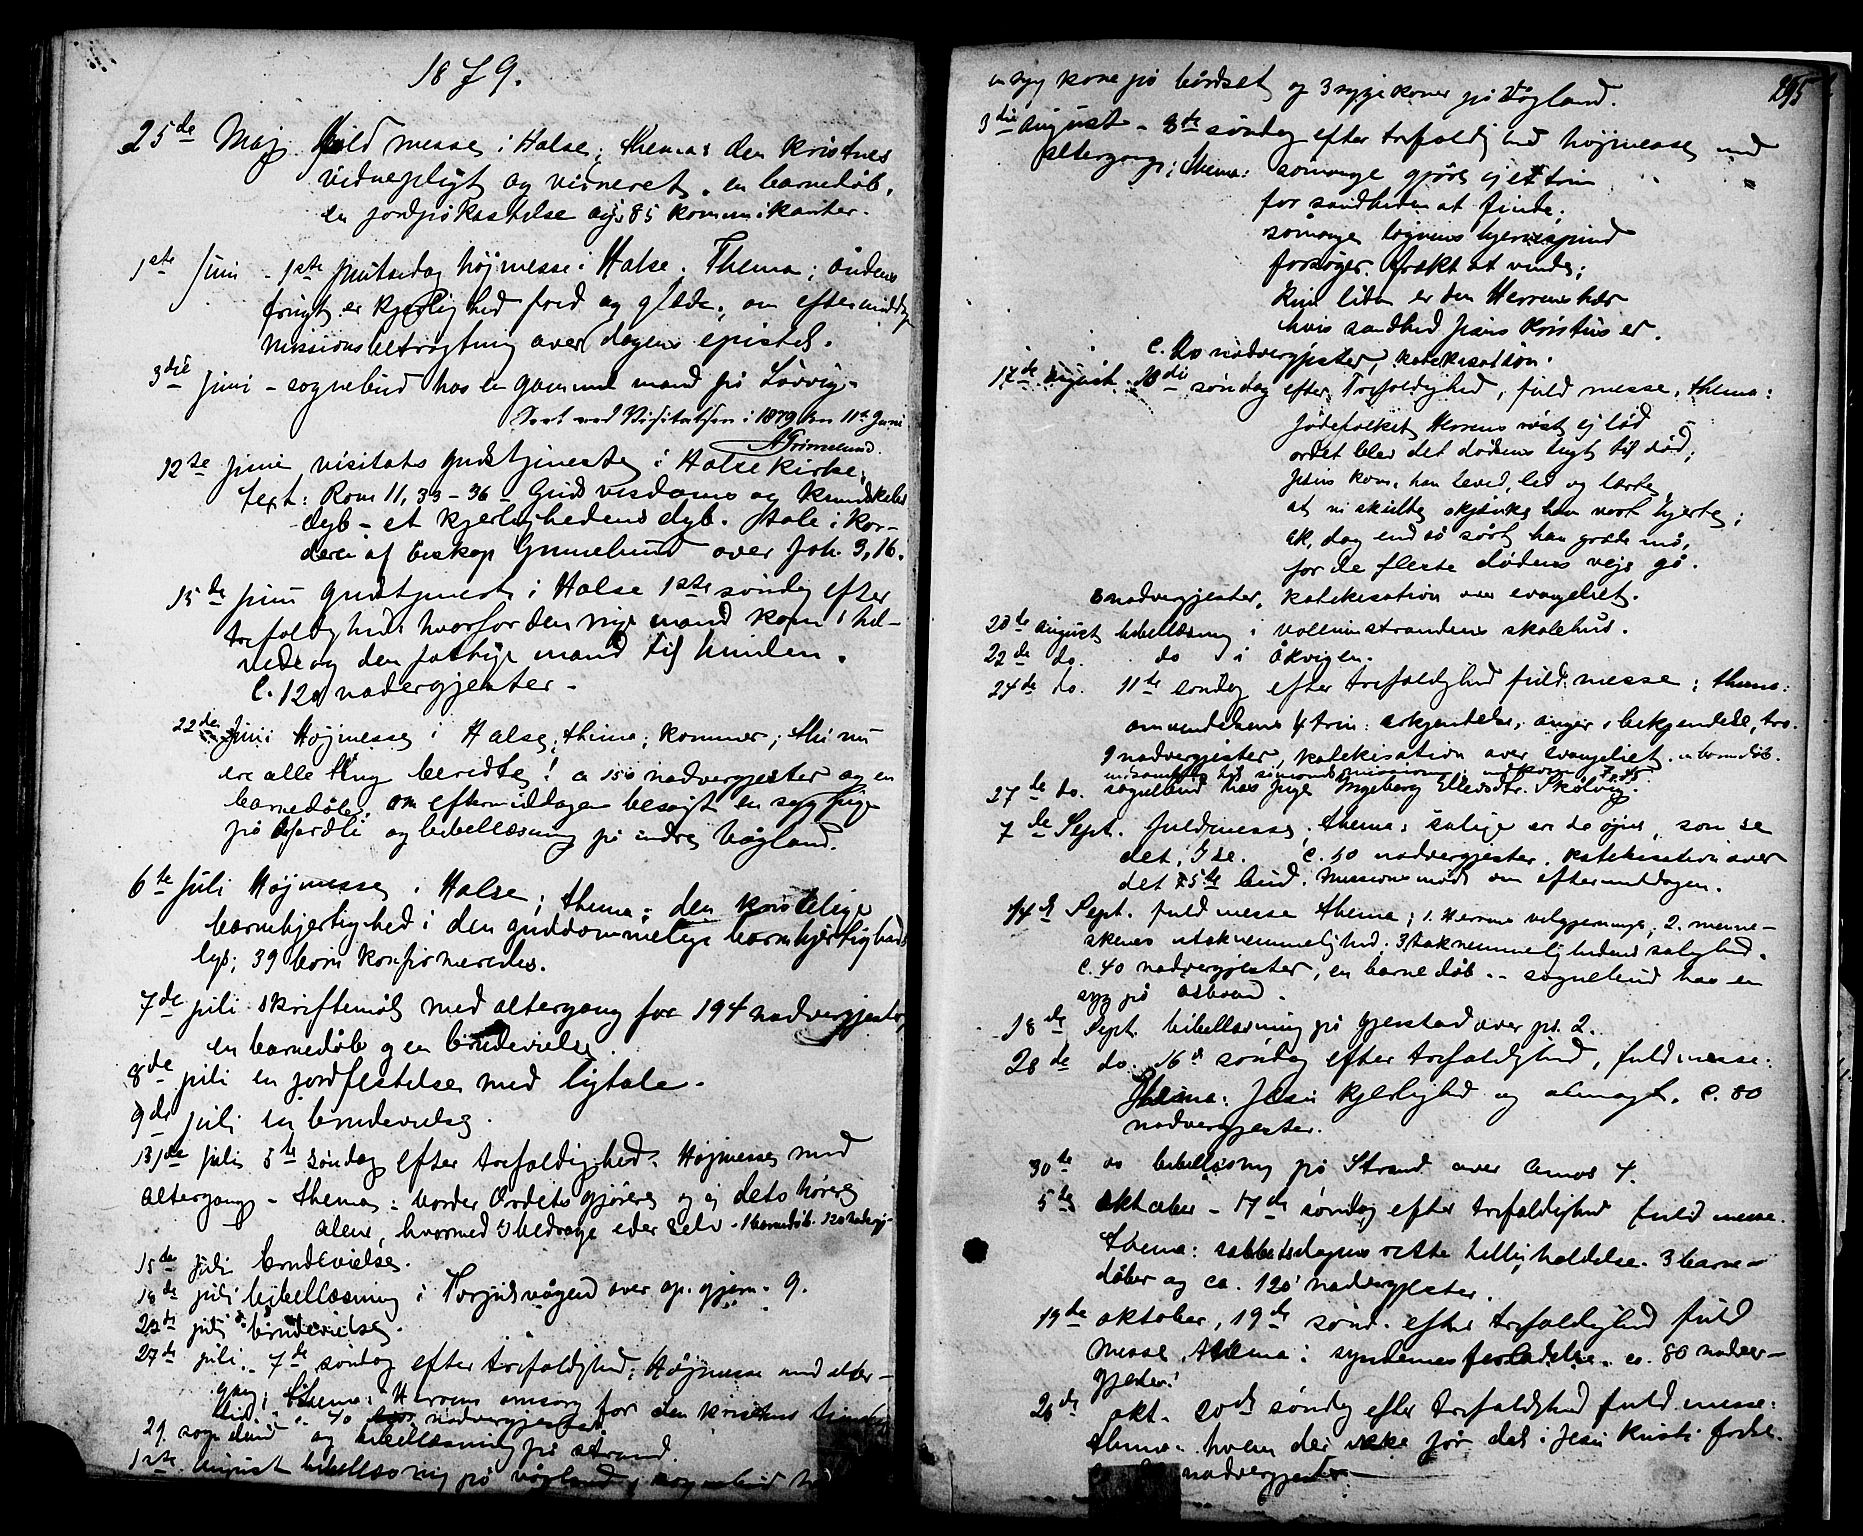 1879.
25de Maj. fuld messe i Halse; thema: den kristnes
vidnepligt og vidneret. en barnedåb,
en jordpåkastelse og 85 kommunikanter.
1ste Juni - 1ste pintsedag højmesse i Halse. Thema: åndens
frugt er kjerlighed fred og glæde; om eftermiddag
missionsbetragtning over dagens epistel.
3die Juni - sognebud hos en gammel mand på Lervig.
Seet ved Visitatsen i 1879 den 11te Juni
AGrimelund.
12te Juni visitats gudstjeneste i Halse kirke;
text: Rom 11, 33-36 - Guds visdoms og kundskabs
dyb - et kjerlighedens dyb. Tale i kor-
døren af biskop Grimelund over Joh. 3,16.
15de Juni Gudstjeneste i Halse 1ste søndag efter
trefoldighed: hvorfor den rige mand kom i hel-
vede og den fattige mand til himlen.
C. 120 nadvergjester -
22de Juni Højmesse i Halse; thema: kommer, thi nu
ere alle ting beredte! ca 150 nadvergjester og en
barnedåb, om eftermiddagen besøgt en syg pige
på og bibellæsning på indre Vågland.
6te Juli Højmesse i Halse; thema: den kristelige
barmhjertighed i den guddommelige barmhjertigheds
lys; 39 børn konfirmeredes.
7de juli skriftemål med altergang for 194 nadvergjester,
en barnedåb og en brudevielse.
8de juli en jordfestelse med ligtale.
9de juli en brudevielse.
13de juli 5te søndag efter trefoldighed. Højmesse med
altergang - thema: vorder Ordets gjørere og ej dets hørere
alene, hvormed I bedrage eder selv - 1 barnedåb. 120 nadvergj-
15de juli brudevielse.
18de juli bibellæsning i Torjulvågen over ap. gjern. 9.
23de juli brudevielse.
27de juli - 7de søndag efter trefoldighed; Højmesse med alter-
gang; thema: Herrens omsorg for den kristnes timelige
40 nadvergjester
29. sognebud og bibellæsning på strand.
1ste august bibellæsning på vågland, sognebud hos
295
en syg kone på bårdset og 3 syge koner på Vågland.
3die august - 8de søndag efter trefoldighed højmesse med
altergang; thema: somange gjøre ej et trin
for sandheden at finde;
somange løgnens hjernespind
forsøger frækt at vinde;
kun liden er den Herrens hær
hvis sandhed Jesus Kristus er.
C. 20 nadvergjester, katekisation.
17de august. 10de søndag efter Trefoldighed, fuld messe, thema:
Jødefolket Herrens røst ej lød
ordet blev det dødens lugt til død;
Jesus kom, han leved, led og lærte,
at vi skulde skjænke ham vort hjerte;
ak, dog endnu så sørt han græde må,
for de fleste dødens veje gå.
8 nadvergjester, katekisation over evangeliet.
20de august bibellæsning i vollenstrandens skolehus.
22de do. do i åkvigen.
24de do. 11te søndag efter trefoldighed fuld messe; thema:
omvendelsens 4 trin: erkjendelse, anger, bekjendelse, tro.
9 nadvergjester, katekisation over evangeliet. en barnedåb.
27de do. sognebud hos pige Ingeborg Ellevsdtr. Skålvig.
7de Sept. fuld messe, thema: salige ere de øjne, som se
det, I se. C. 50 nadvergjester. katekisation over
det 5te bud. Missionsmøde om eftermiddagen.
14d Sept. fuld messe thema; 1. Herrens velgjerninger, 2. menne-
skenes utaknemmelighed. 3 taknemmelighedens salighed.
C. 40 nadvergjester, en barnedåb. - sognebud hos en
syg på Åsbøen.
18de Sept. bibellæsning på Gjerstad over ps. 2.
28de do. 16d søndag efter trefoldighed, fuld messe:
Thema: Jesu kjerlighed og almagt. C. 80
nadvergjester.
30te do bibellæsning på Strand over Amos 4.
5te oktober - 17de søndag efter trefoldighed fuld messe.
thema: sabbatsdagens rette helligholdelse. 3 barne-
dåber og ca. 120 nadvergjester.
19de oktober, 19de sønd. efter trefoldighed fuld
messe. thema: syndernes forladelse. ca. 80 nadver-
gjester.
26de okt. 20de søndag efter trefoldighed fuld messe:
thema: hvem der ikke får del i Jesu Kristi
nadvergjester -